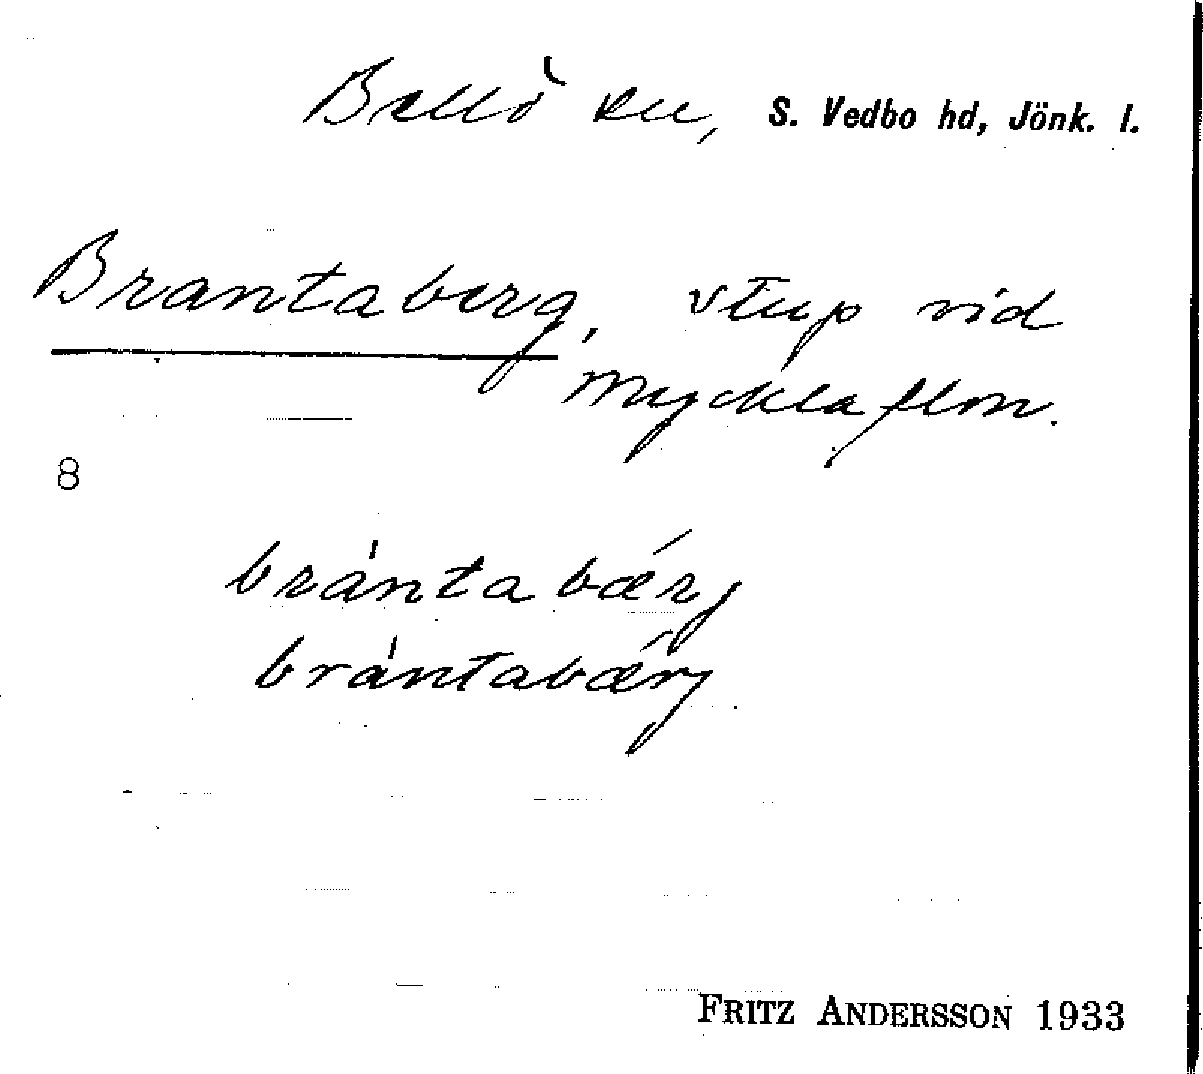 Bellö sn, S. Vedbo hd, Jönk. l.
Brantaberg, stup vid
Mycklaflon.
8
bràntabǽrj
bràntabǽrj
FRITZ ANDERSSON 1933